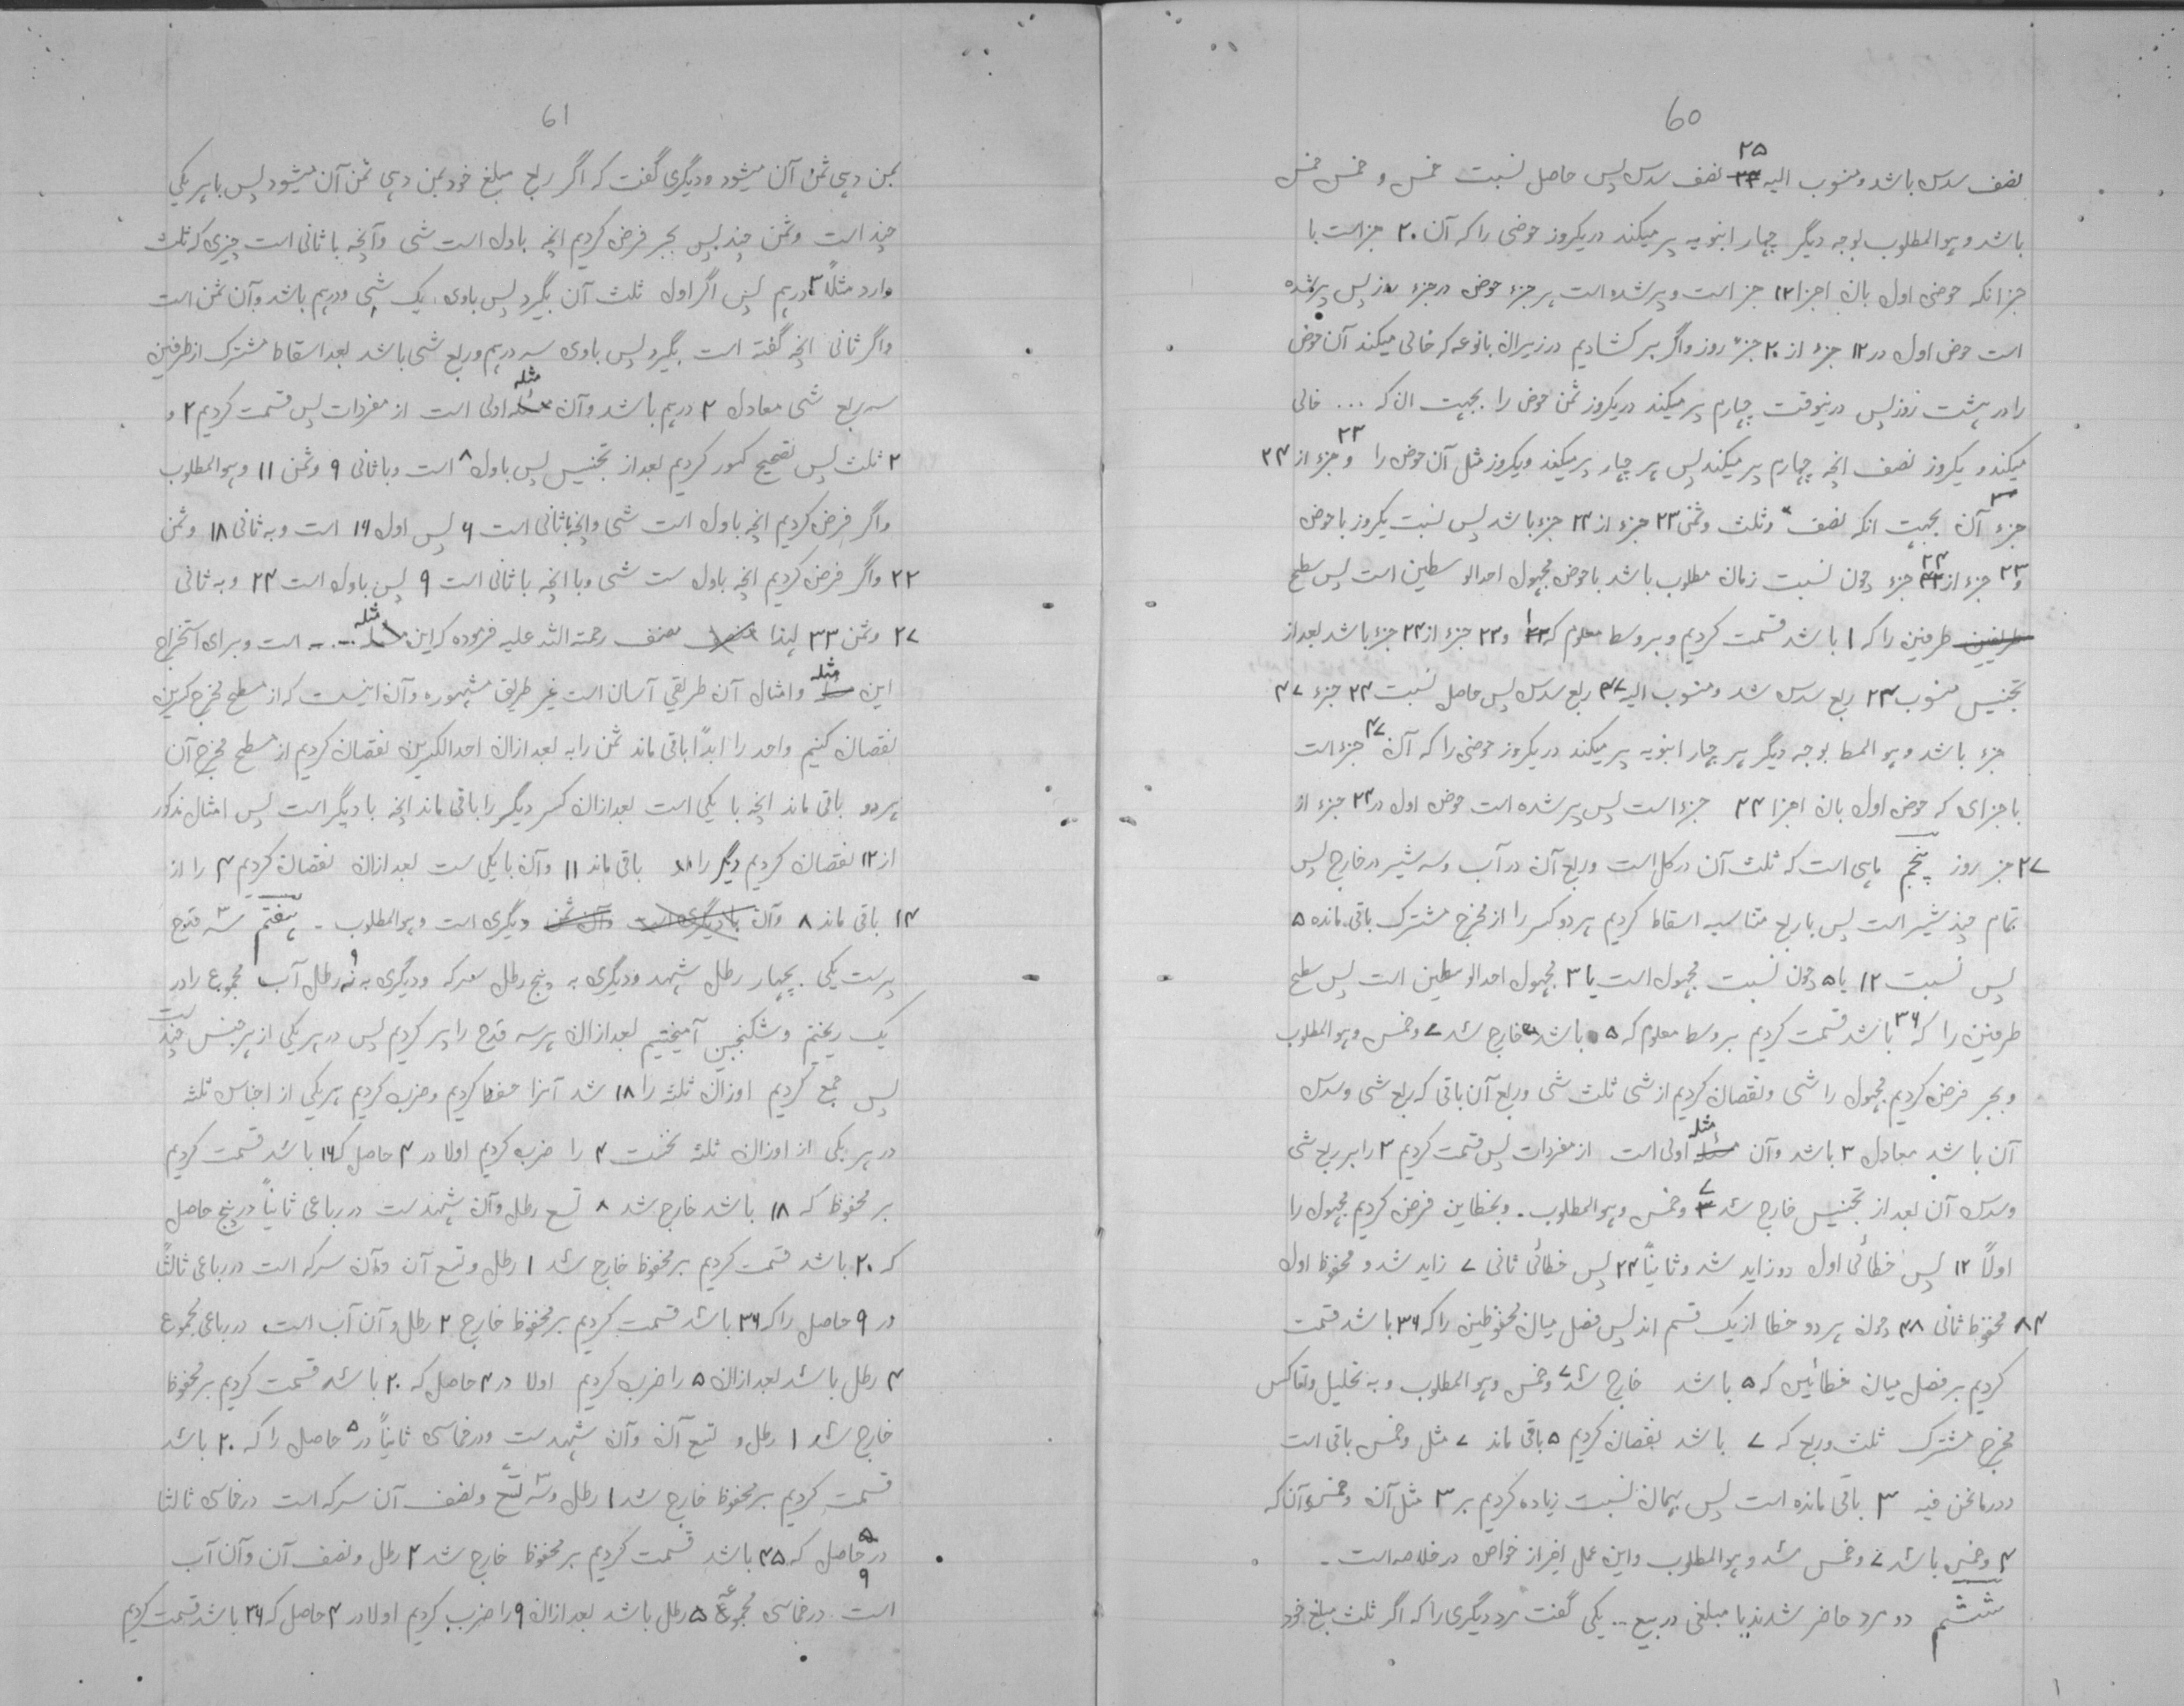 60
نصف سدس باشد و منسوب الیه ۲۵ نصف سدس پس حاصل نسبت خمس و خمس خمس
باشد و هو المطلوب بوجه دیگر چهار انبوبه پر میکند در یکروز حوضی را که آن ۲۰ جز است با
جز انکه حوض اول بان اجزا ۱۲ جز است و پر شده است هر جزء حوض در جزء روز پس پر شده
است حوض اول در ۱۲ جزء از ۲۰ جزء روز و اگر بر کشادیم در زیران بالوعه که خالی میکند آن حوض
را در هشت روز پس درینوقت چهارم پر میکند در یکروز ثمن حوض را بجهت ان که ... خالی
میکند و یکروز نصف انچه چهارم پر میکند پس هر چهار پر میکند ویکروز مثل آن حوض را و ۲۳ جزء از ۲۴
جزء آن بجهت انکه نصف و ثلث و ثمن ۲۳ جزء از ۲۴ جزء باشد پس نسبت یکروز با حوض
و ۲۳ جزء از ۲۴ جزء چون نسبت زمان مطلوب باشد با حوض مجهول احد الوسطین است پس سطح
طرفین طرفین را که ۱ باشد قسمت کردیم و بر وسط معلوم که ۱ و ۲۳ جزء از ۲۴ جزء باشد بعد از
تجنیس منسوب ۲۴ ربع سدس شد و منسوب الیه ۴۷ ربع سدس پس حاصل نسبت ۲۴ جزء ۴۷
جزء باشد و هو المط بوجه دیگر هر چهار انبوبه پر میکند در یکروز حوضی را که آن ۴۷ جزء است
با جزای که حوض اول بان اجزا ۲۴ جزء است پس پر شده است حوض اول در ۲۴ جزء از
۴۷ جز روز پنجم ماهی است که ثلث آن در کل است و ربع آن در آب و سه شبر در خارج پس
تمام چند شبر است پس باربع متناسبه اسقاط کردیم هر دو کسر را از مخرج مشترک باقی مانده ۵
پس نسبت ۱۲ با ۵ چون نسبت مجهول است با ۳ مجهول احد الوسطین است پس سطح
طرفین را که ۳۶ باشد قسمت کردیم بر وسط معلوم که ۵ باشد خارج شد ۷ و خمس و هو المطلوب
و بجبر فرض کردیم مجهول را شی و نقصان کردیم از شی ثلث شی و ربع آن باقی که ربع شی و سدس
آن باشد معادل ۳ باشد و آن مثله اولی است از مفردات پس قسمت کردیم ۳ را بر ربع شی
و سدس آن بعد از تجنیس خارج شد ۷ و خمس و هو المطلوب ۔ و بخطاین فرض کردیم مجهول را
اولاً ۱۲ پس خطائی اول دو زاید شد و ثانیاً ۲۴ پس خطائی ثانی ۷ زاید شد و محفوظ اول
۸۴ محفوظ ثانی ۴۸ چون هر دو خطا از یک قسم اند پس فضل میان محفوظین را که ۳۶ باشد قسمت
کردیم بر فضل میان خطائین که ۵ باشد خارج شد ۷ و خمس و هو المطلوب و به تحلیل و تعاکس
مخرج مشترک ثلث و ربع که ۷ باشد نقصان کردیم ۵ باقی ماند ۷ مثل و خمس باقی است
و در مانحن فیه ۳ باقی مانده است پس بهمان نسبت زیاده کردیم بر ۳ مثل آن و خمس آن که
۴ و خمس باشد ۷ و خمس شد و هو المطلوب و این عمل افراز خواص در خلاصه است ۔
ششم دو مرد حاضر شدند با مبلغی در بیع ... یکی گفت مرد دیگری را که اگر ثلث مبلغ خود
61
بمن دهی ثمن آن میشود و دیگری گفت که اگر ربع مبلغ خود بمن دهی ثمن آن میشود پس با هر یکی
چند است و ثمن چند پس بجبر فرض کردیم انچه باول است شی و آنچه با ثانی است چیزی که ثلث
دارد مثلاً ۳ درهم پس اگر اول ثلث آن بگیرد پس باوی یک شی و درهم باشد و آن ثمن است
و اگر ثانی انچه گفته است بگیرد پس باوی سه درهم و ربع شی باشد بعد اسقاط مشترک از طرفین
سه ربع شی معادل ۲ درهم باشد و آن مثله اولی است از مفردات پس قسمت کردیم ۲ و
۲ ثلث پس تصحیح کسور کردیم بعد از تجنیس پس باول ۸ است و با ثانی ۹ و ثمن ۱۱ و هو المطلوب
و اگر فرض کردیم انچه باول است شی و انچه با ثانی است ۶ پس اول ۱۶ است و به ثانی ۱۸ و ثمن
۲۲ و اگر فرض کردیم انچه باول ست شی و با انچه با ثانی است ۹ پس باول است ۲۴ و به ثانی
۲۷ و ثمن ۳۳ لهذا مصنف رحمة الله علیه فرموده که این مثله ... است و برای استخراج
این مثله و امثال آن طریقی آسان است غیر طریق مشهوره و آن اینست که از سطح مخرج کسرین
نقصان کنیم واحد را ابداً باقی ماند ثمن را به بعد ازان احد الکسرین نقصان کردیم از سطح مخرج آن
هر دو باقی ماند انچه با یکی است بعد ازان کسر دیگر را باقی ماند انچه با دیگر است پس امثال مذکور
از ۱۲ نقصان کردیم دیگر را باقی ماند ۱۱ و آن با یکی ست بعد ازان نقصان کردیم ۴ را از
۱۲ باقی ماند ۸ و آن با دیگری است و آن ثمن دیگری است و هو المطلوب ۔ هفتم سه قدح
پرست یکی بچهار رطل شهد و دیگری به پنج رطل سرکه و دیگری به نه ۹ رطل آب مجموع را در
یک ریختم و سکنجبین آمیختیم بعد ازان هر سه قدح را پر کردیم پس در هر یکی از هر جنس چند است
پس جمع کردیم اوزان ثلثه را ۱۸ شد آنرا حفظ کردیم و ضرب کردیم هر یکی از اجناس ثلثه
در هر یکی از اوزان ثلثه نخست ۴ را ضرب کردیم اولا در ۴ حاصل که ۱۶ باشد قسمت کردیم
بر محفوظ که ۱۸ باشد خارج شد ۸ تسع رطل و آن شهدست در رباعی ثانیاً در پنج حاصل
که ۲۰ باشد قسمت کردیم بر محفوظ خارج شد ۱ رطل و تسع آن و آن سرکه است در رباعی ثالثاً
در ۹ حاصل را که ۳۶ باشد قسمت کردیم بر محفوظ خارج ۲ رطل و آن آب است در رباعی مجموع
۴ رطل باشد بعد ازان ۵ را ضرب کردیم اولا در ۴ حاصل که ۲۰ باشد قسمت کردیم بر محفوظ
خارج شد ۱ رطل و تسع آن و آن شهدست و در خماسی ثانیاً در ۵ حاصل را که ۲۰ باشد
قسمت کردیم بر محفوظ خارج شد ۱ رطل و سه تسع و نصف آن سرکه است در خماسی ثالثا
در ۹ حاصل که ۴۵ باشد قسمت کردیم بر محفوظ خارج شد ۲ رطل و نصف آن و آن آب
است در خماسی مجموع ۵ رطل باشد بعد ازان ۹ را ضرب کردیم اولا در ۴ حاصل که ۳۶ باشد قسمت کردیم